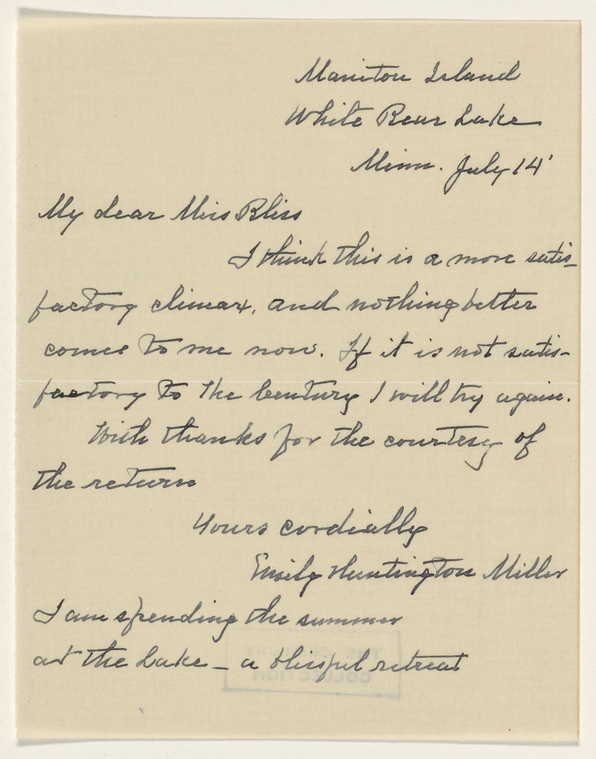 Maniton Island
White Bear Lake
Minn. July 14'
My dear Miss Bliss
I think this is a more satis-
factory climax, and nothing better
comes to me now. If it is not satis-
factory to the Century I will try again.
With thanks for the courtesy of
the return
Yours cordially
Emily Huntington Miller
I am spending the summer
at the Lake - a blissful retreat
COLLECTION